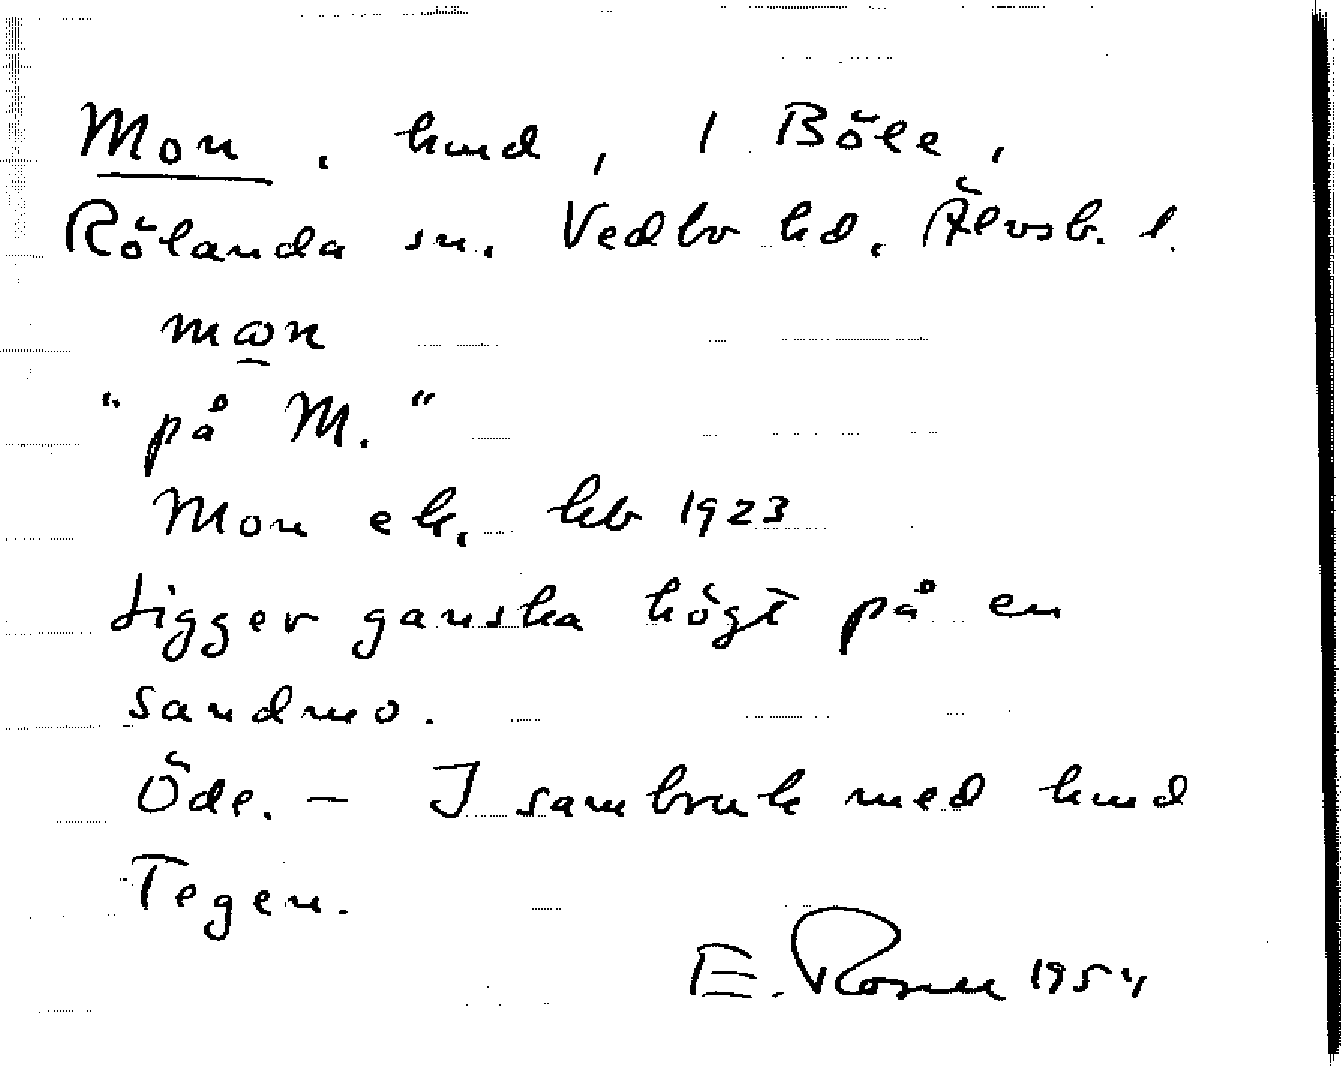 Mon, hmd, 1 Böle,
Rölanda sn. Vedbo hd. Älvsb. l.
"på M."
Mon ek. kb 1923
Ligger ganska högt på en
sandmo.
Öde. — I sambruk med hmd
Tegen.
E. Rosell 1954